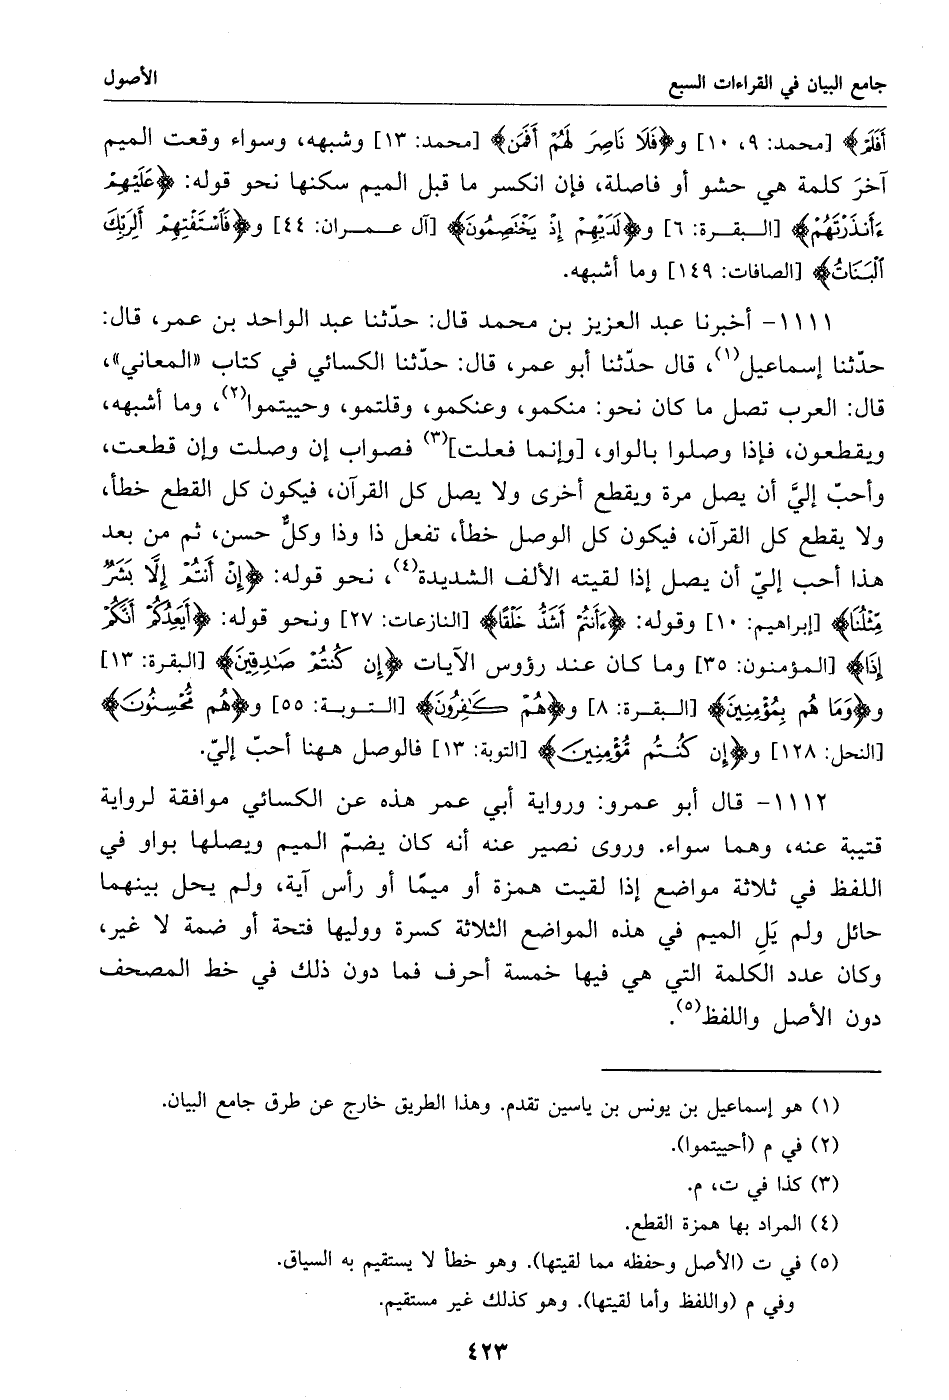 جامع البيان في القراءات السبع
الأصول
أَفَلَمْ﴾ [محمد: ٩، ١٠] و﴿فَلَا نَاصِرَ لَهُمْ أَفَمَن﴾ [محمد: ١٣] وشبهه، وسواء وقعت الميم
آخرَ كلمة هي حشو أو فاصلة، فإن انكسر ما قبل الميم سكنها نحو قوله: ﴿عَلَيْهِمْ
ءَأَنذَرْتَهُمْ﴾ [البقرة: ٦] و﴿لَدَيْهِمْ إِذْ يَخْتَصِمُونَ﴾ [آل عمران: ٤٤] و﴿فَٱسْتَفْتِهِمْ أَلِرَبِّكَ
ٱلْبَنَاتُ﴾ [الصافات: ١٤٩] وما أشبهه.
١١١١- أخبرنا عبد العزيز بن محمد قال: حدّثنا عبد الواحد بن عمر، قال:
حدّثنا إسماعيل(١)، قال حدّثنا أبو عمر، قال: حدّثنا الكسائي في كتاب «المعاني»،
قال: العرب تصل ما كان نحو: منكمو، وعنكمو، وقلتمو، وحييتموا(٢)، وما أشبهه،
ويقطعون، فإذا وصلوا بالواو، [وإنما فعلت](٣) فصواب إن وصلت وإن قطعت،
وأحبّ إليَّ أن يصل مرة ويقطع أخرى ولا يصل كل القرآن، فيكون كل القطع خطأ،
ولا يقطع كل القرآن، فيكون كل الوصل خطأ، تفعل ذا وذا وكلٌّ حسن، ثم من بعد
هذا أحب إليّ أن يصل إذا لقيته الألف الشديدة(٤)، نحو قوله: ﴿إِنْ أَنتُمْ إِلَّا بَشَرٌ
مِّثْلُنَا﴾ [إبراهيم: ١٠] وقوله: ﴿ءَأَنتُمْ أَشَدُّ خَلْقًا﴾ [النازعات: ٢٧] ونحو قوله: ﴿أَيَعِدُكُمْ أَنَّكُمْ
إِذَا﴾ [المؤمنون: ٣٥] وما كان عند رؤوس الآيات ﴿إِن كُنتُمْ صَٰدِقِينَ﴾ [البقرة: ١٣]
و﴿وَمَا هُم بِمُؤْمِنِينَ﴾ [البقرة: ٨] و﴿هُمْ كَٰفِرُونَ﴾ [التوبة: ٥٥] و﴿هُم مُّحْسِنُونَ﴾
[النحل: ١٢٨] و﴿إِن كُنتُم مُّؤْمِنِينَ﴾ [التوبة: ١٣] فالوصل ههنا أحبّ إليّ.
١١١٢- قال أبو عمرو: ورواية أبي عمر هذه عن الكسائي موافقة لرواية
قتيبة عنه، وهما سواء. وروى نصير عنه أنه كان يضمّ الميم ويصلها بواو في
اللفظ في ثلاثة مواضع إذا لقيت همزة أو ميمًا أو رأس آية، ولم يحل بينهما
حائل ولم يَلِ الميم في هذه المواضع الثلاثة كسرة ووليها فتحة أو ضمة لا غير،
وكان عدد الكلمة التي هي فيها خمسة أحرف فما دون ذلك في خط المصحف
دون الأصل واللفظ(٥).
(١) هو إسماعيل بن يونس بن ياسين تقدم. وهذا الطريق خارج عن طرق جامع البيان.
(٢) في م (أحييتموا).
(٣) كذا في ت، م.
(٤) المراد بها همزة القطع.
(٥) في ت (الأصل وحفظه مما لقيتها). وهو خطأ لا يستقيم به السياق.
وفي م (واللفظ وأما لقيتها). وهو كذلك غير مستقيم.
٤٢٣